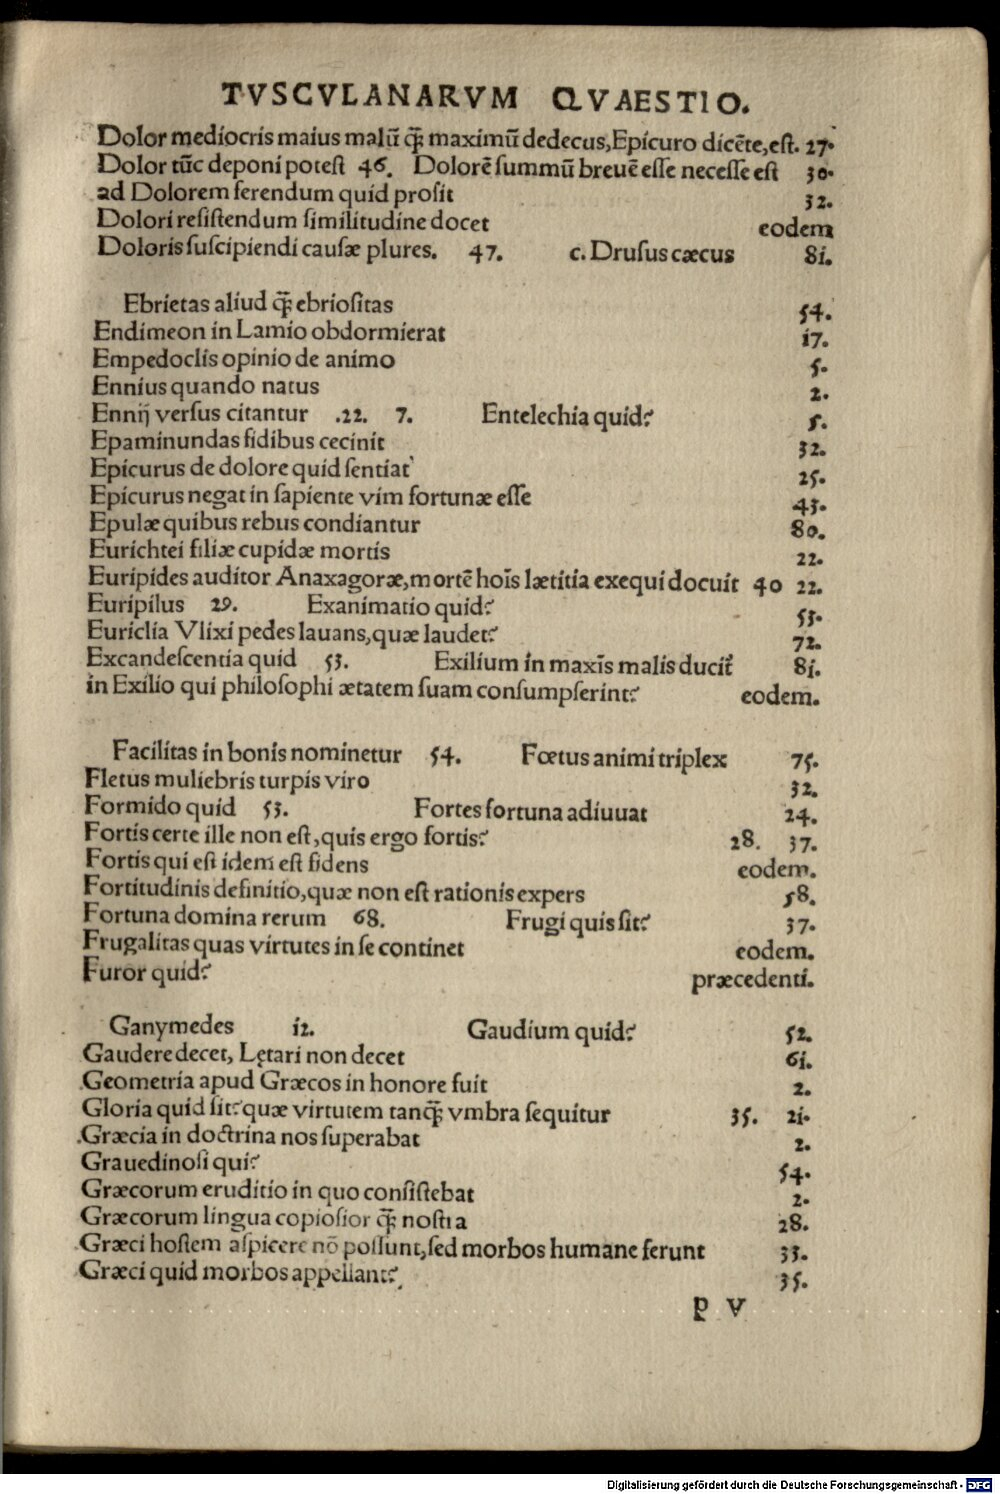 TVSCVLANARVM QVAESTIO.
Dolor mediocris maius malū q̄ꝫ maximū dedecus,Epicuro dicēte,eſt. 27.
Dolor tūc deponi poteſt 46. Dolorē ſummū breuē eſſe neceſſe eſt 30.
ad Dolorem ferendum quid proſit 32.
Dolori reſiſtendum ſimilitudine docet eodem
Doloris ſuſcipiendi cauſæ plures. 47. c. Druſus cæcus 81.
Ebrietas aliud q̄ꝫ ebrioſitas 54.
Endimeon in Lamio obdormierat 17.
Empedoclis opinio de animo 5.
Ennius quando natus 2.
Ennij verſus citantur .22. 7. Entelechia quid? 5.
Epaminundas fidibus cecinit 32.
Epicurus de dolore quid ſentiat 25.
Epicurus negat in ſapiente vim fortunæ eſſe 43.
Epulæ quibus rebus condiantur 80.
Eurichtei filiæ cupidæ mortis 22.
Euripides auditor Anaxagoræ,mortē hoīs lætitia exequi docuit 40 22.
Euripilus 29. Exanimatio quid? 53.
Euriclia Vlixi pedes lauans,quæ laudet? 72.
Excandeſcentia quid 53. Exilium in maxīs malis ducit᷑ 81.
in Exilio qui philoſophi ætatem ſuam conſumpſerint? eodem.
Facilitas in bonis nominetur 54. Fœtus animi triplex 75.
Fletus muliebris turpis viro 32.
Formido quid 53. Fortes fortuna adiuuat 24.
Fortis certe ille non eſt,quis ergo fortis? 28. 37.
Fortis qui eſt idem eſt fidens eodem.
Fortitudinis definitio,quæ non eſt rationis expers 58.
Fortuna domina rerum 68. Frugi quis ſit? 37.
Frugalitas quas virtutes in ſe continet eodem.
Furor quid? præcedenti.
Ganymedes 12. Gaudium quid? 52.
Gaudere decet, Lętari non decet 61.
Geometria apud Græcos in honore fuit 2.
Gloria quid ſit?quæ virtutem tanq̄ꝫ vmbra ſequitur 35. 21.
Græcia in doctrina nos ſuperabat 2.
Grauedinoſi qui? 54.
Græcorum eruditio in quo conſiſtebat 2.
Græcorum lingua copioſior q̄ꝫ noſtra 28.
Græci hoſtem aſpicere nō poſſunt,ſed morbos humane ferunt 33.
Græci quid morbos appellant? 35.
P V
Digitalisierung gefördert durch die Deutsche Forschungsgemeinschaft - DFG